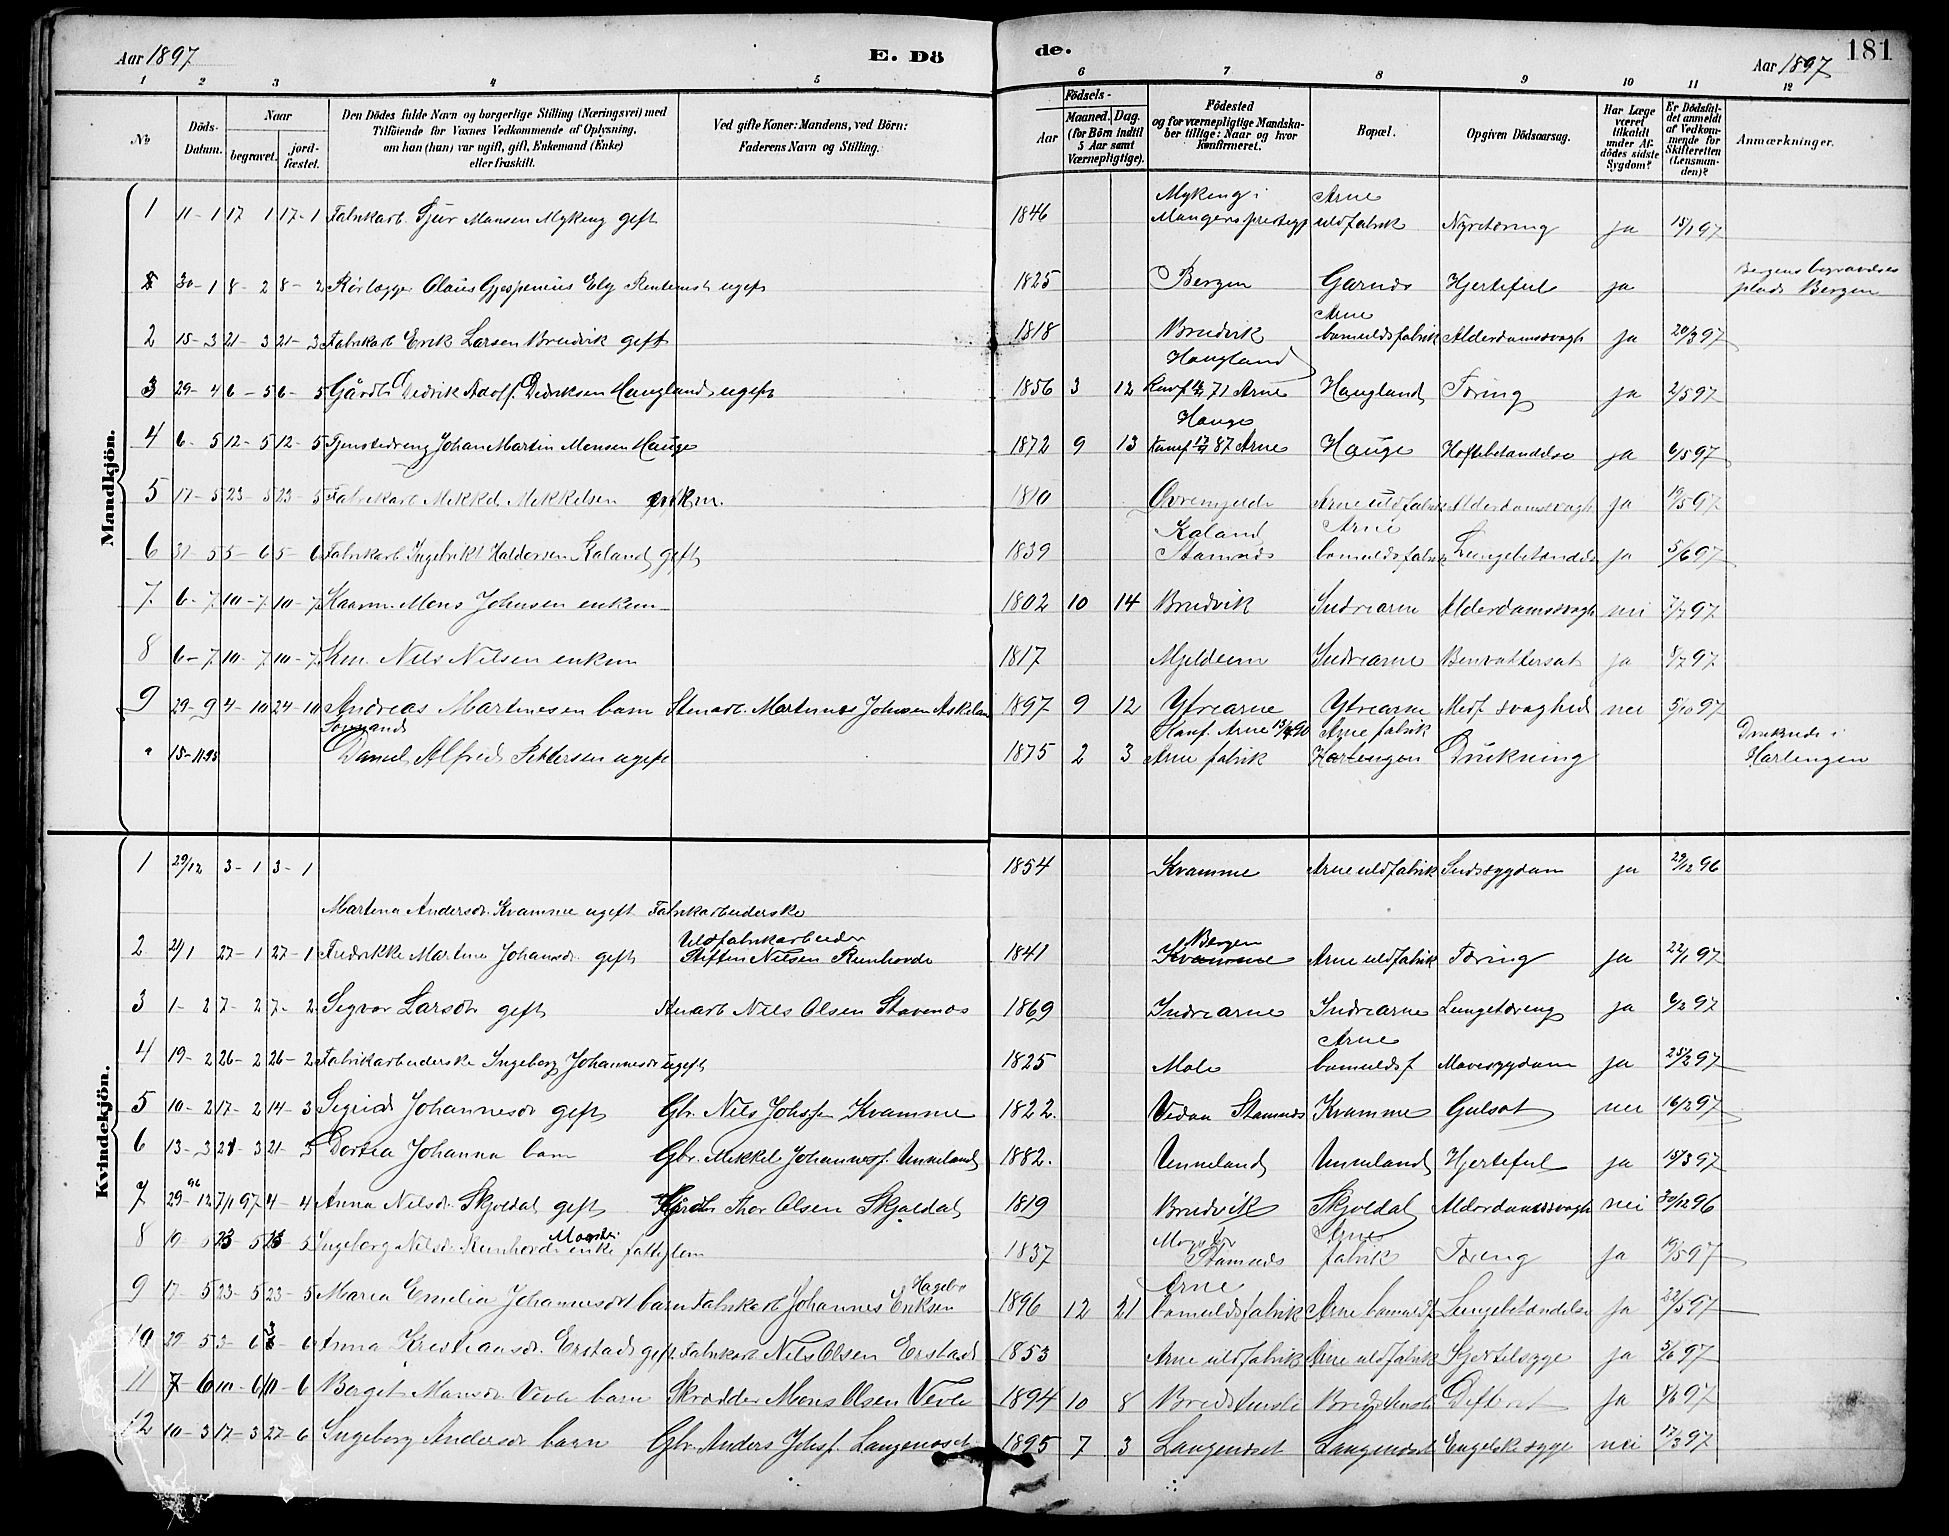 Aar 1897
E. Dö
de.
Aar 1897
181
1 2 3 4 5 6 7 8 9 10 11 12
No
Döds-Datum.
Naar
begravet.
jord-fæstet.
Den Dödes fulde Navn og borgerlige Stilling (Næringsvei) med
Tilföiende for Voxnes Vedkommende af Oplysning,
om han (hun) var ugift, gift, Enkemand (Enke)
eller fraskilt.
Ved gifte Koner: Mandens, ved Börn:
Faderens Navn og Stilling.
Födsels-
Aar
Maaned. Dag.
(for Börn indtil
5 Aar samt
Værnepligtige).
Födested
og for værnepligtige Mandska-
ber tillige: Naar og hvor
konfirmeret.
Bopæl.
Opgiven Dödsaarsag.
Har Læge
været
tilkaldt
under Af-
dödes sidste
Sygdom?
Er Dödsfal-
det anmeldt
af Vedkom-
mende for
Skifteretten
(Lensman-
den)?
Anmærkninger.
Mandkjön.
1 11-1 17 1 17-1 Fabrikarb. Sjur Monsen Mykeng gift 1846 Mykeng i Mangers prestegj Arne uldfabrik Nyretæring ja 15/1 97
30-1 8-2 8-2 Olaus ugift 1825 Bergen Garnes Hjertefeil ja Bergens begravelses plads Bergen
2 15-3 21-3 21-3 Fabrikarb Erik Larsen Bruvik gift 1818 Bruvik Arne bomuldsfabrik Alderdomssvagh ja 20/3 97
3 29-4 6-5 6-5 Gårdbr Didrik Adolf Didriksen Haugland ugift 1856 3 12 Haugland Konf 71 Arne Haugland Tæring ja 2/5 97
4 6-5 12-5 12-5 Tjenestedreng Johan Martin Monsen Hauge 1872 9 13 Hauge Konf 87 Arne Hauge Hoftebetændelse ja 6/5 97
5 17-5 23-5 23-5 Fabrikarb Mikkel Mikkelsen enkem. 1810 Arne uldfabrik Alderdomssvagh ja 19/5 97
6 31-5 5-6 5-6 Fabrikarb Ingebrikt Haldorsen Kaland gift 1839 Kaland Stamnes Arne bomuldsfabrik Lungebetændels ja 5/6 97
7 6-7 10-7 10-7 Kaarm. Mons Johnsen enkem 1802 10 14 Bruvik Indrearne Alderdomssvagh nei 7/7 97
8 6-7 10-7 10-7 Nils Nilsen enkem 1817 Mjeldeim Indrearne Benvattersot ja 8/7 97
9 29-9 4-10 24-10 Andreas Martinesen barn Stenarb. Martinus Johnsen Askeland 1897 9 12 Ytrearne Ytrearne Medf svaghed nei 5/10 97
" 15-11 95 Sømand Daniel Alfred Pettersen ugift 1875 2 3 Konf. Arne 90 Arne fabrik Arne fabrik Harlingen Drukning Druknede i Harlingen
Kvindekjön.
1 29/12 3-1 3-1 Martena Andersdr. Kvamme ugift Fabrikarbeiderske 1854 Kvamme Arne uldfabrik Sindssygdom ja 29/12 96
2 21/1 27-1 27-1 Fredrikke Martina Johansdr. gift Uldfabrikarbeider Steffen Nilsen Reinhovde 1841 Bergen Kvamme Arne uldfabrik Tæring ja 22/1 97
3 1-2 7-2 7-2 Sigvor Larsdr gift Stenarb Nils Olsen Stavenes 1869 Indrearne Indrearne Lungetæring ja 6/2 97
4 19-2 26-2 26-2 Fabrikarbeiderske Ingeborg Johannesdr ugift 1825 Male Arne bomuldsf Mavesygdom ja 25/2 97
5 10-2 17-2 14-3 Sigrid Johannesdr gift Gbr. Nils Johsf Kvamme 1822. Vedaa Stamnes Kvamme Gulsot nei 16/2 97
6 13-3 21-3 21-5 Dortea Johanna barn Gbr. Mikkel Johannesf. Unneland 1882. Unneland Unneland Hjertefeil ja 15/3 97
7 29-12 96 7/1 97 4-4 Anna Nilsdr. Skjoldal gift Thor Olsen Skjoldal 1819 Bruvik Skjoldal Alderdomssvagh nei 30/12 96
8 10-5 23-5 23-5 Ingeborg Nilsdr. Reinhovde enke fattiglem 1837 Stamnes Arne fabrik Tæring ja 19/5 97
9 17-5 23-5 23-5 Maria Emilia Johannesdr barn Fabrikarb Johannes Eriksen 1896 12 21 Arne bomuldsfabrik Arne bomuldsf Lungebetændelse ja 22/5 97
10 29-5 3-6 3-6 Anna Kristiansdr. Erstad gift Fabrikarb Nils Olsen Erstad 1853 Arne uldfabrik Arne uldfabrik ja 3/6 97
11 7-6 10-6 10-6 Berget Monsdr Vevle barn Skrædder Mons Olsen Vevle 1894 10 8 ja 8/6 97
12 10-3 17-3 27-6 Ingeborg Andersdr barn Gbr. Anders Johsf Langenæset 1895 7 3 Langenæset Langenæset Engelsk syge nei 17/3 97